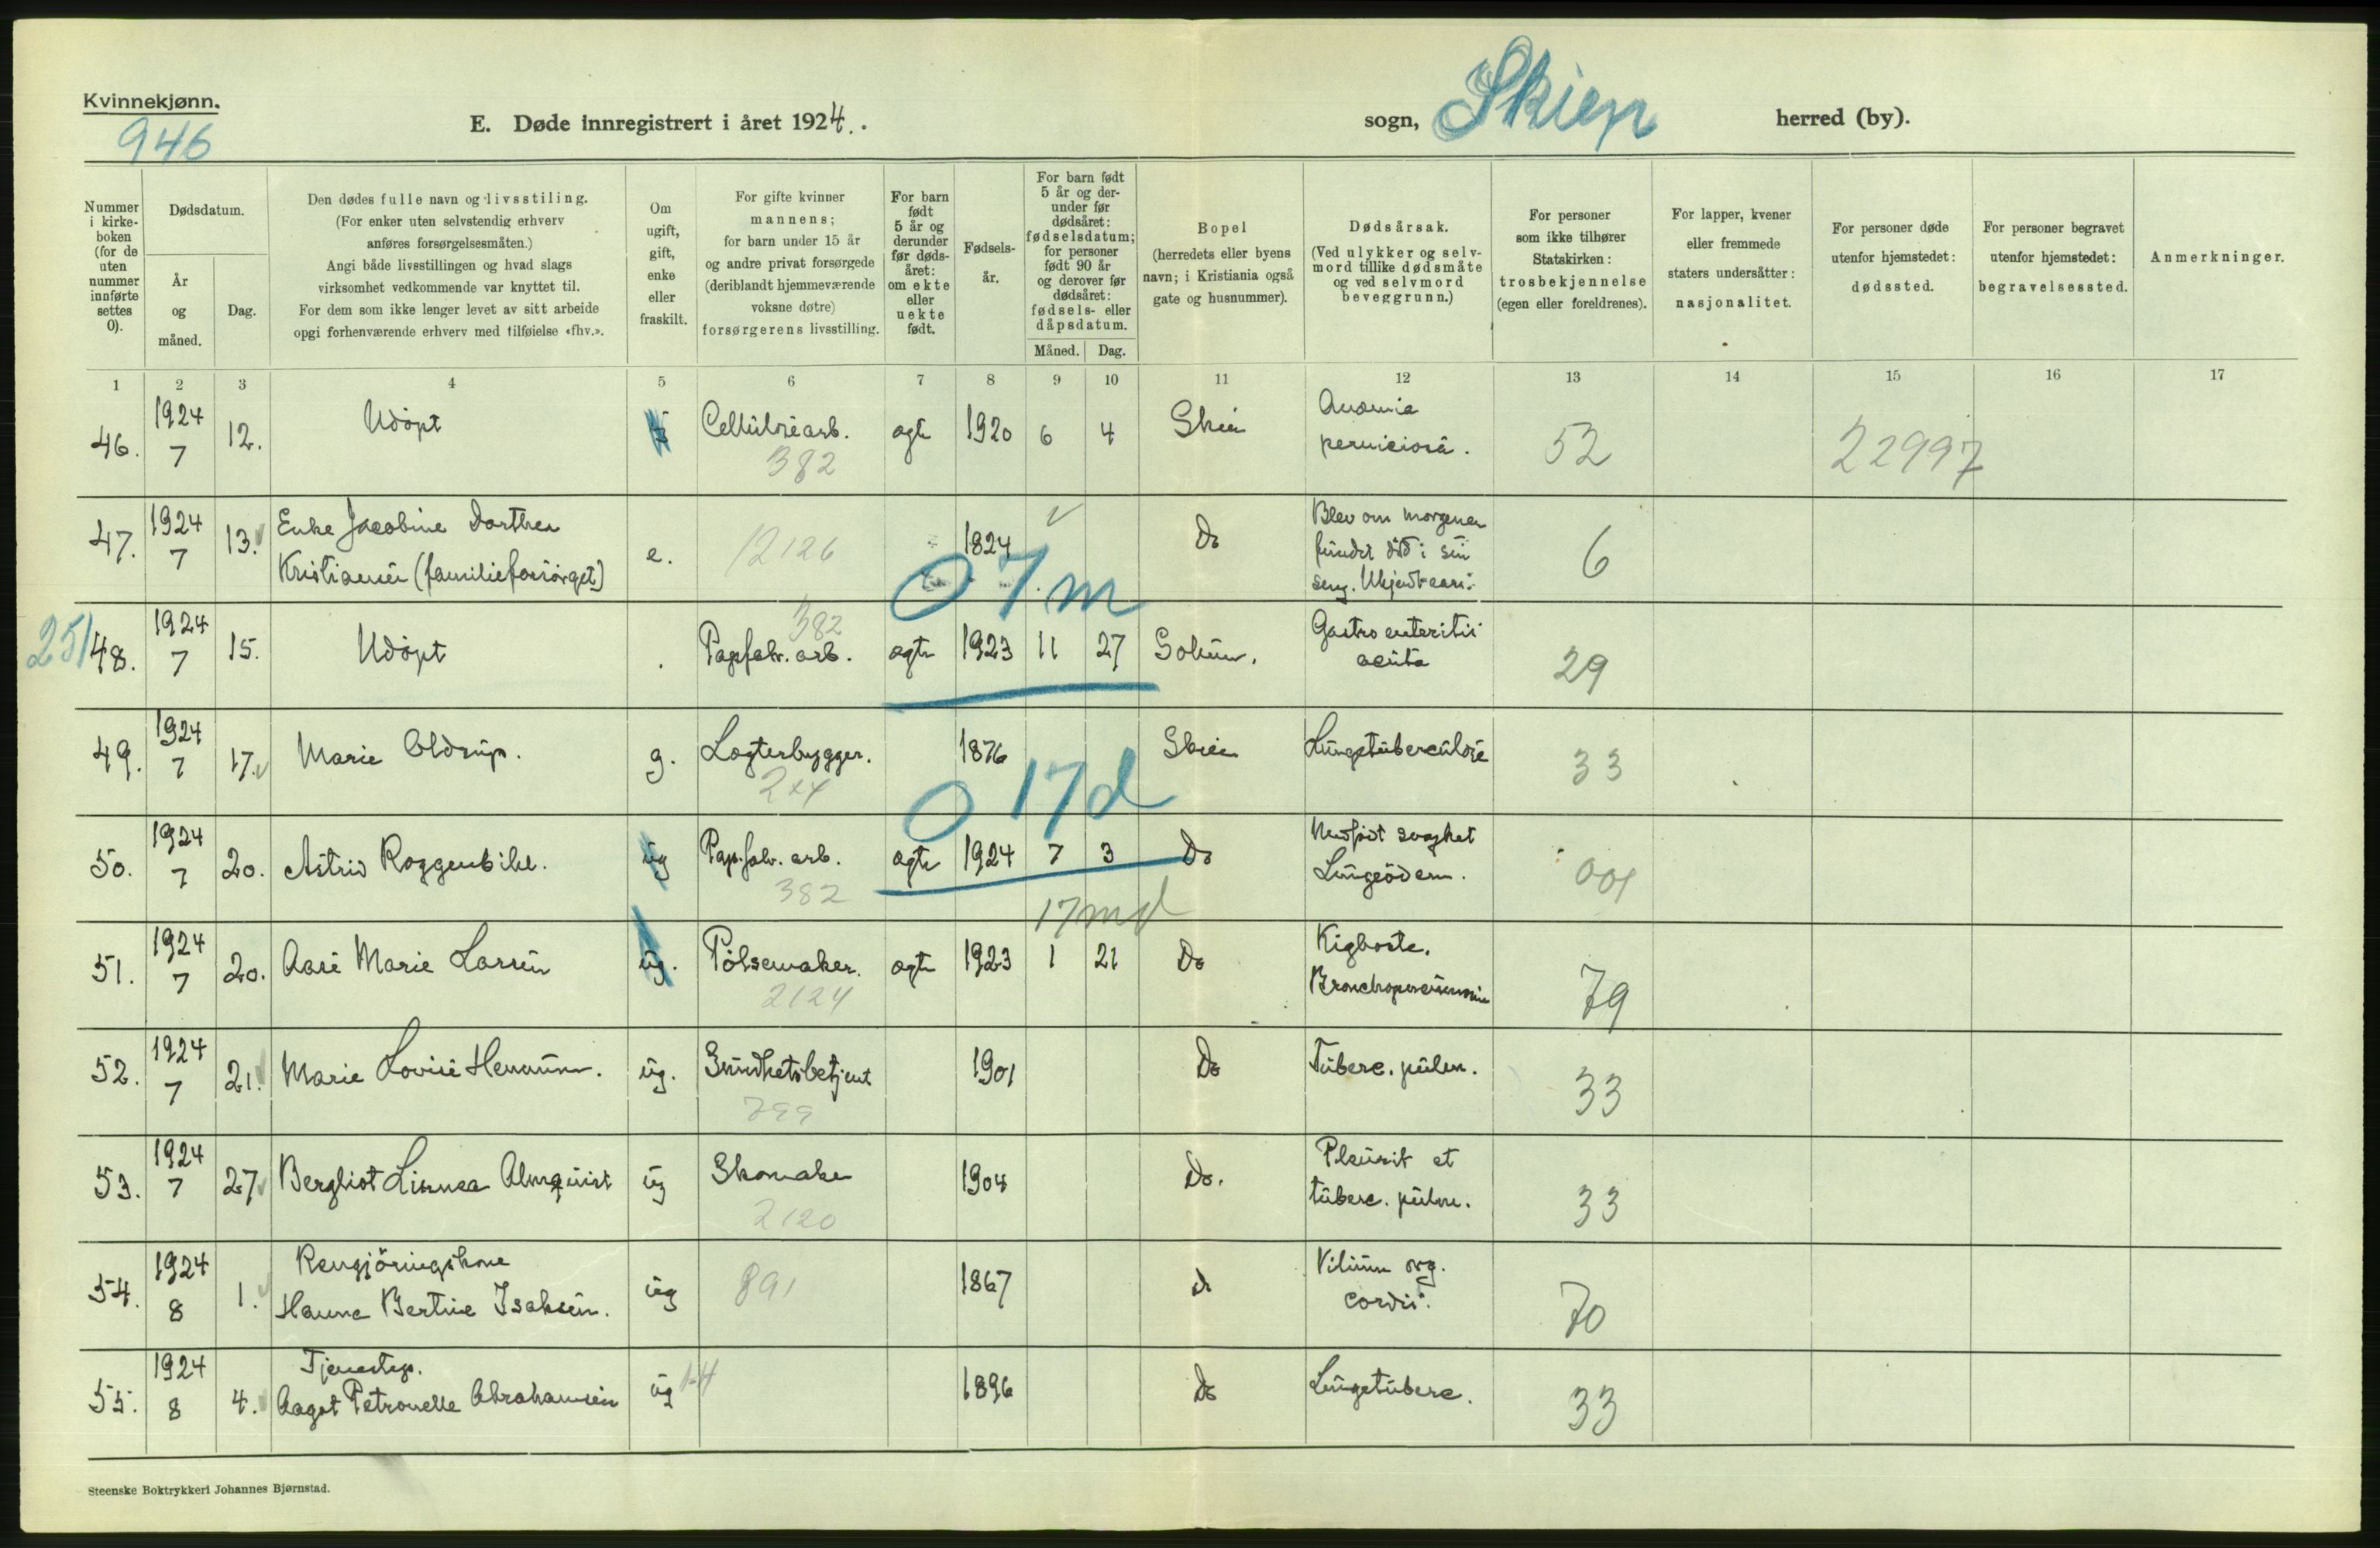 Kvinnekjønn.
946
E. Døde innregistrert i året 1924. .
sogn, Skien herred (by).
Nummer i kirke- boken (for de uten nummer innførte settes 0).
Dødsdatum.
År og måned.
Dag.
Den dødes fulle navn og livsstiling.
(For enker uten selvstendig erhverv
anføres forsørgelsesmåten.)
Angi både livsstillingen og hvad slags
virksomhet vedkommende var knyttet til.
For dem som ikke lenger levet av sitt arbeide
opgi forhenværende erhverv med tilføielse «fhv.».
Om ugift, gift, enke eller fraskilt.
For gifte kvinner
mannens;
for barn under 15 år
og andre privat forsørgede
(deriblandt hjemmeværende
voksne døtre)
forsørgerens livsstilling.
For barn født 5 år og derunder før døds- året: om ekte eller uekte født.
Fødsels- år.
For barn født 5 år og der- under før dødsåret: fødselsdatum; for personer født 90 år og derover før dødsåret: fødsels- eller dåpsdatum.
Måned. Dag.
Bopel
(herredets eller byens
navn; i Kristiania også
gate og husnummer).
Dødsårsak.
(Ved ulykker og selv-
mord tillike dødsmåte
og ved selvmord
beveggrunn.)
For personer
som ikke tilhører
Statskirken:
trosbekjennelse
(egen eller foreldrenes).
For lapper, kvener
eller fremmede
staters undersåtter:
nasjonalitet.
For personer døde
utenfor hjemstedet:
dødssted.
For personer begravet
utenfor hjemstedet:
begravelsessted.
Anmerkninger.
1 2 3 4 5 6 7 8 9 10 11 12 13 14 15 16 17
46. 1924 7 12. Udöpt Cellulosearb. 382 ogte 1920 6 4 Skien Anæmia perniciosa. 52 22997
47. 1924 7 13. Enke Jacobine Dorthea
Kristiansen (familieforsörget) e. 12126 1824 Do Blev om morgenen
fundet död i sin
seng. Ukjendt aars.
6
0 7 m
251 48. 1924 7 15. Udöpt . Papfabr. arb. 382 ogte 1923 11 27 Solum. Gastro enteritis
acuta 29
49. 1924 7 17. Marie Oldrup. g. Logterbygger. 1876 Skien Lungetuberculose 33
0 17 d
50. 1924 7 20. Astrid Roggenbihl. ug Pap.fabr. arb. 382 ogte 1924 7 3 Do Nyfödt svaghet
Lungeödem. 001
17 md
51. 1924 7 20. Aase Marie Larsen ug. Pölsemaker. 2124 ogte 1923 1 21 Do Kighoste.
Bronchopneumonie 79
52. 1924 7 21. Marie Lovise Hemmun. ug. Sundhetsbetjent 1901 Do Tuberc. pulm. 33
53. 1924 7 27 Bergliot Linnea Almquist ug Skomaker 2120 1904 Do. Pleurit et
tuberc. pulm. 33
54. 1924 8 1. Rengjöringskone
Hanna Bertine Isaksen. ug 891 1867 do Vitium org.
cordis. 70
55. 1924 8 4. Tjenestep.
Aagot Petronelle Abrahamsen ug 1896 Do Lungetuberc. 33
Steenske Boktrykkeri Johannes Bjørnstad.